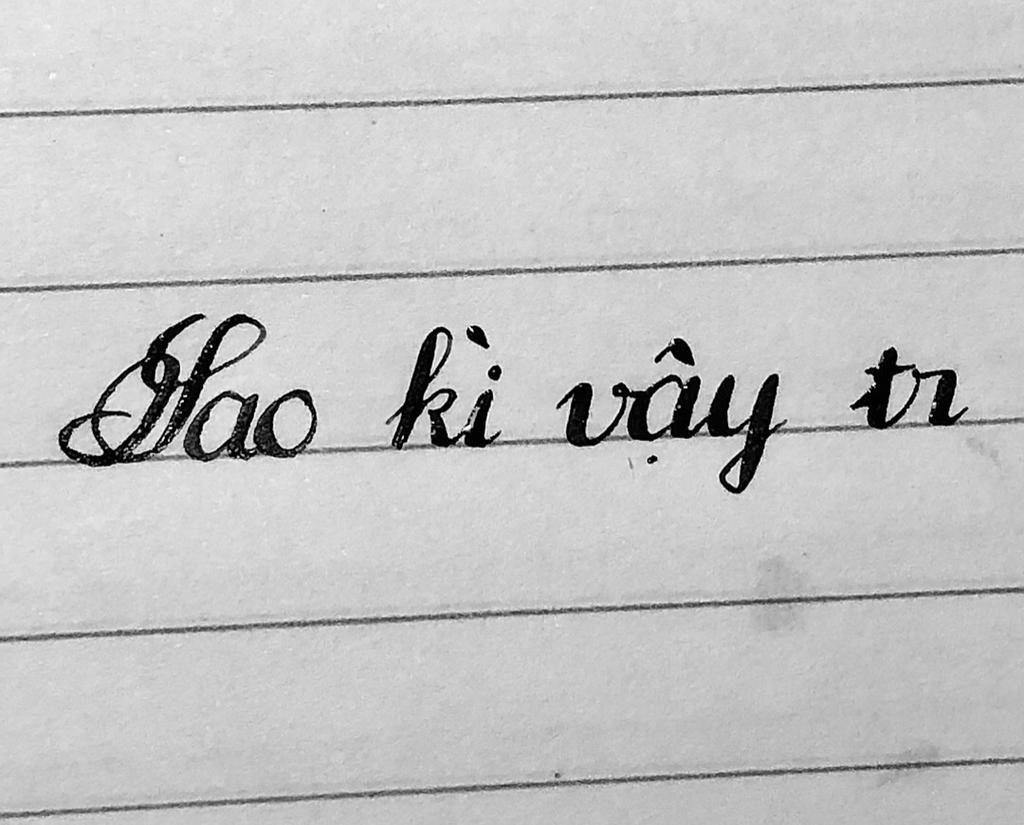 Sao kì vậy tr